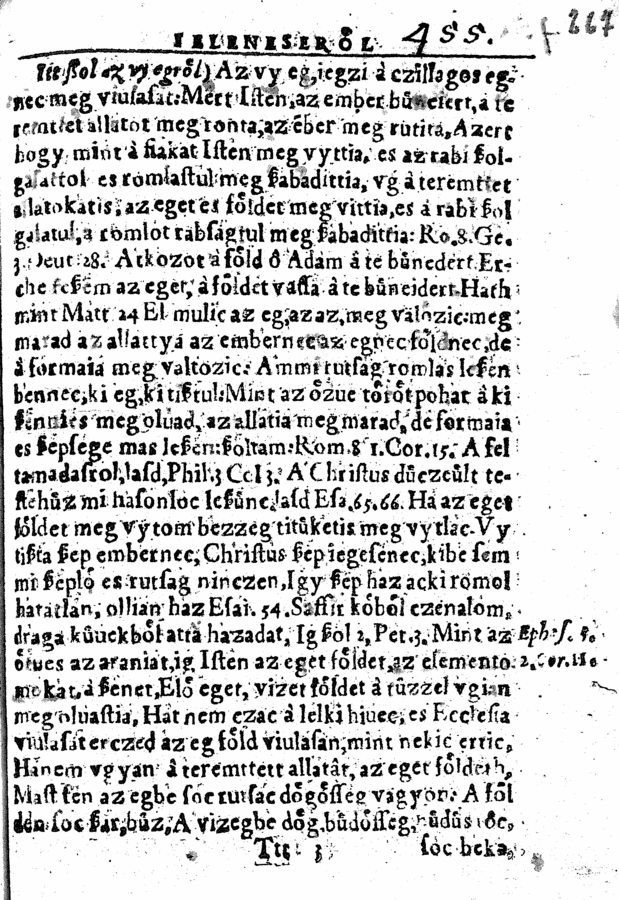 IELENESEROL 455. 227
Itt ßol az vy egröl) Az vy eg, iegzi à czillagos eg-
nec meg viulasat: Mert Isten, az ember bűneiert, à te
remttet allatot meg ronta, az ēber meg rutita, Azert
hogy mint à fiakat Isten meg vyttia, es az rabi ßol-
gasattol es romlastul meg ßabadittia, vg à teremttet
allatokatis, az eget es földet meg vittia, es à rabi ßol
galatul, a romlot rabsagtul meg ßabadittia: Ro. 8. Ge.
3. Deut 28. Atkozot a föld ò Adam à te bűnedert Er-
che leßem az eget, à földet vassa à te bűneidert Hath
mint Matt 24 El mulic az eg, az az, meg valozic: meg
marad az allattya az embernec az egnec földnec, de
à formaia meg valtozic: A mmi rutsag romlas leßen
bennec, ki eg, ki tißtul: Mint az özue törötpohar à ki
meg oluad, az allatia meg marad, de formaia
es ßepsege mas leßen: ßoltam: Rom. 8 1. Cor. 15. A fel
tamadasrol, lasd, Phil. 3 Col 3. A Christus düczeült te-
stehűz mi hasonloc leßünc, lasd Esa. 65. 66. Ha az eget
földet meg vytom bezzeg titüketis meg vytlac. Vy
tißta ßep embernec, Christus ßep iegesenec, kibe sem
mi ßeplö es rutsag ninczen, Igy ßep haz acki romol
hatatlan, ollian haz Esai. 54. Saffir köböl czenalom,
draga küuekböl atta hazadat, Ig ßol 2, Pet. 3. Mint az Eph: 5. 5.
ötues az araniat, ig Isten az eget földet, az elemento- 2. Cor. 11.
mokat, à ßenet, Elö eget, vizet földet à tüzzel vgian
meg oluastia, Hat nem czac à lelki hiuec, es Ecclesia
viulasat erczed az eg föld viulasan, mint nekic ertic,
Hanem vgyan à teremttett allatāt, az eget földeth,
Mast ßen az egbe soc rutsac dögösseg vagyon: A föl
den soc ßar, bűz, A vizegbe dög, büdösseg, büdüs
Ttt 3 soc beka,